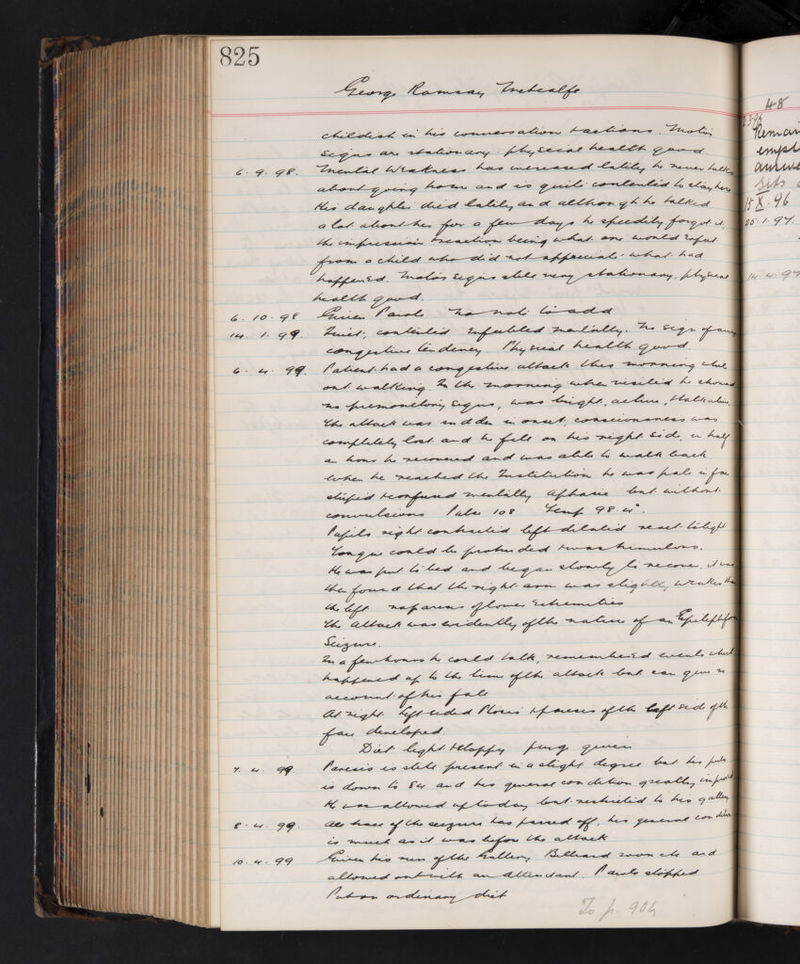 825
George Ramsay Metcalfe
childish in his conversation & actions. Motor
signs are stationary. physical health good.
6. 9. 98. Mental Weakness has increased lately, he never talks
about going home and is quite contented to stay here
His daughter died lately and although he talked
a lot about her for a few days he speedily forgot it,
the impression & reaction being what one would expect
from a child who did not appreciate what had
happened. Motor signs still very stationary, physical
health good.
6. 10. 98 Given Parole no note to add
14. 1. 99. Quiet, contented enfeebled mentally. No sign of any
congestive tendency. Physical health good
6. 4. 99. Patient had a congestive attack this morning while
out walking. In the morning when visited he showed
no premonitory signs, was bright, active, & talkative.
The attack was sudden in onset, consciousness was
completely lost and he fell on his right side, in half
an hour he recovered and was able to walk back
when he reached the Institution he was pale in face
stupid & confused mentally aphasic but without
convulsions Pulse 108 Temp 98.4°.
Pupils right contracted left dilated react to light
Tongue could be protruded & was tremulous.
He was put to bed and began slowly to recover, it was
then found that the right arm was slightly weaker than
the left no paresis of lower extremities
The attack was evidently of the nature of an Epileptiform
Seizure.
In a few hours he could talk, remembered events which
happened up to the time of the attack but can give no
account of his fall
At night left sided & paresis of the left side of the
face developed
Diet light & sloppy purge given
7. 4. 99 Paresis is still present in a slight degree but his pulse
is down to 84 and his general condition greatly improved
He was allowed up today but restricted to his gallery
8. 4. 99. All trace of the seizure has passed off, his general condition
is much as it was before the attack
10. 4. 99 Given his run of the Gallery Billiard room etc and
allowed out with an attendant. Parole stopped
Put on ordinary diet
To p. 904
48
Remai
empl
15 X. 96
25. 1. 97.
14. 4. 97